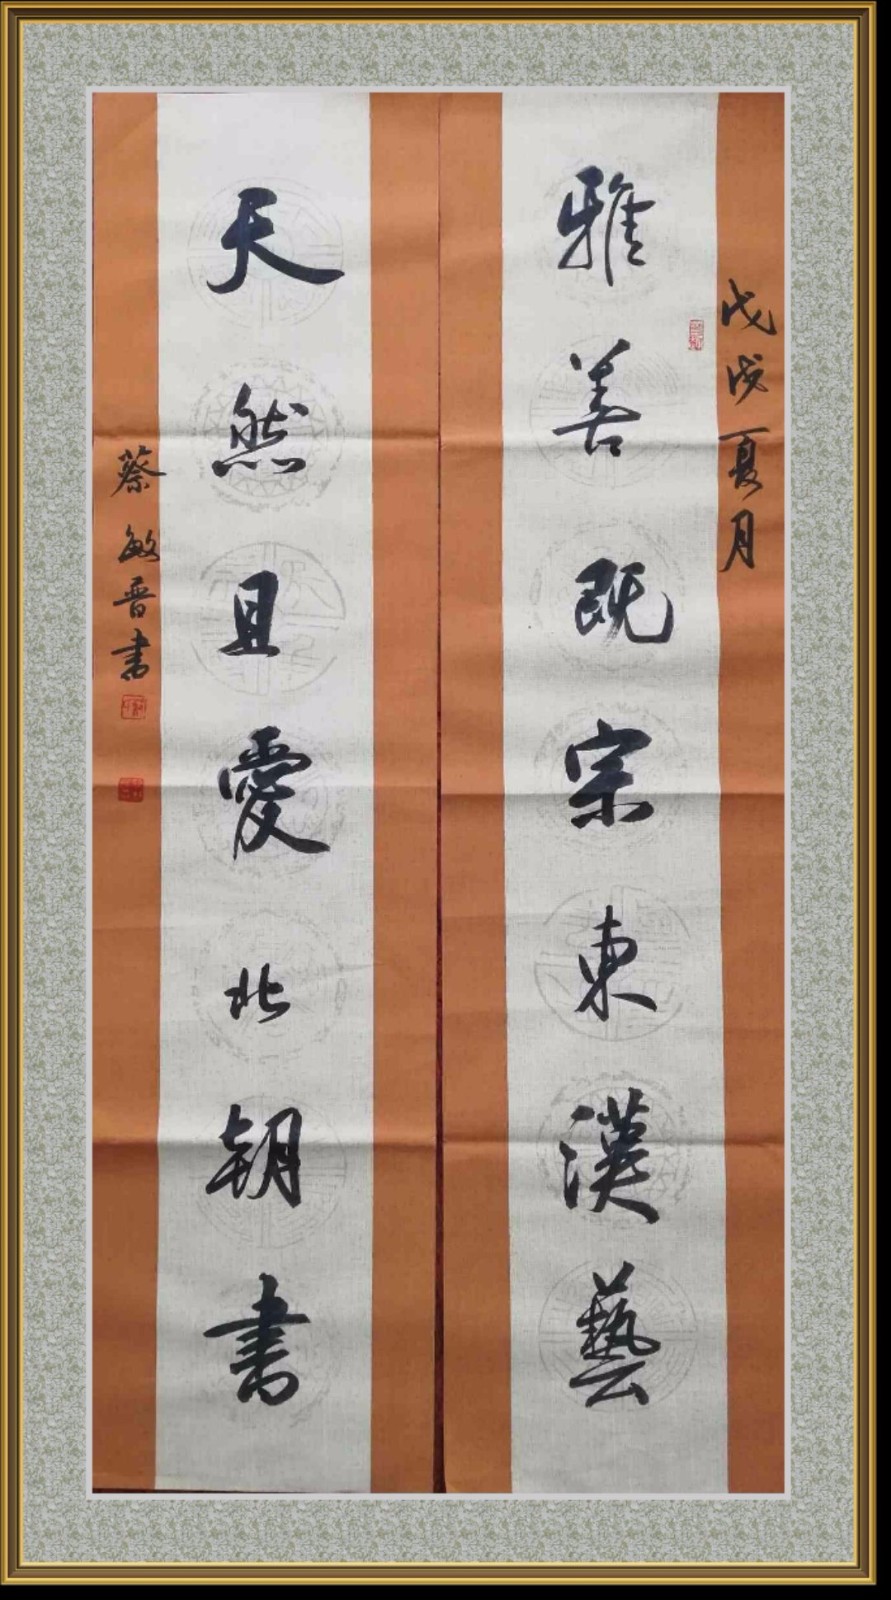 戊戌夏月
雅善既宗東漢藝
天然且愛北朝書
蔡敏晋书